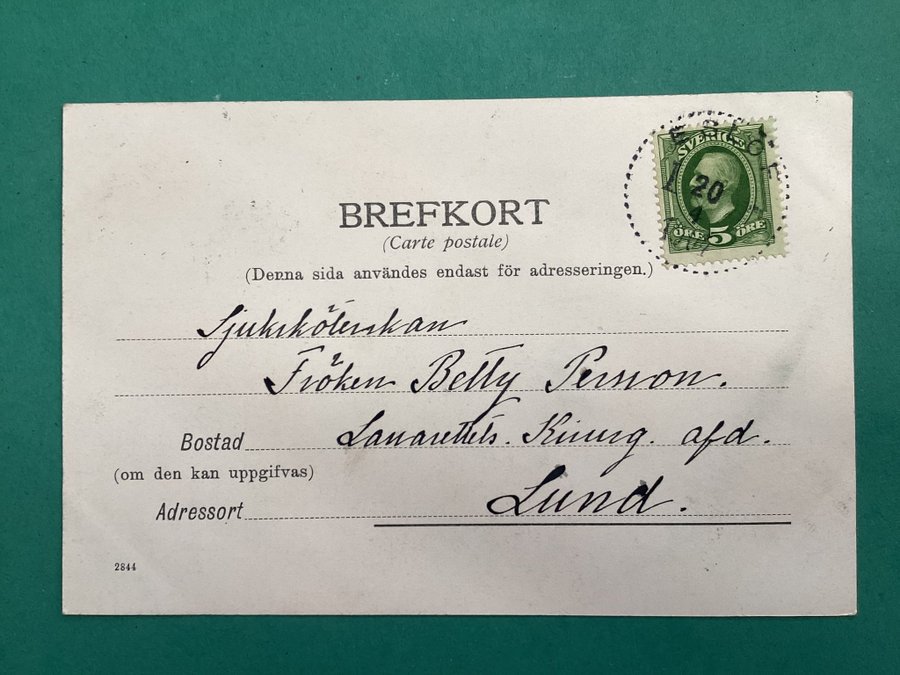 BREFKORT
(Carte postale)
(Denna sida användes endast för adresseringen.)
SVERIGE
20
ÖRE 5 ÖRE
Sjuksköterskan
Fröken Betty Persson.
Bostad Lazarettets. Kirurg. afd.
(om den kan uppgifvas)
Adressort Lund.
2844